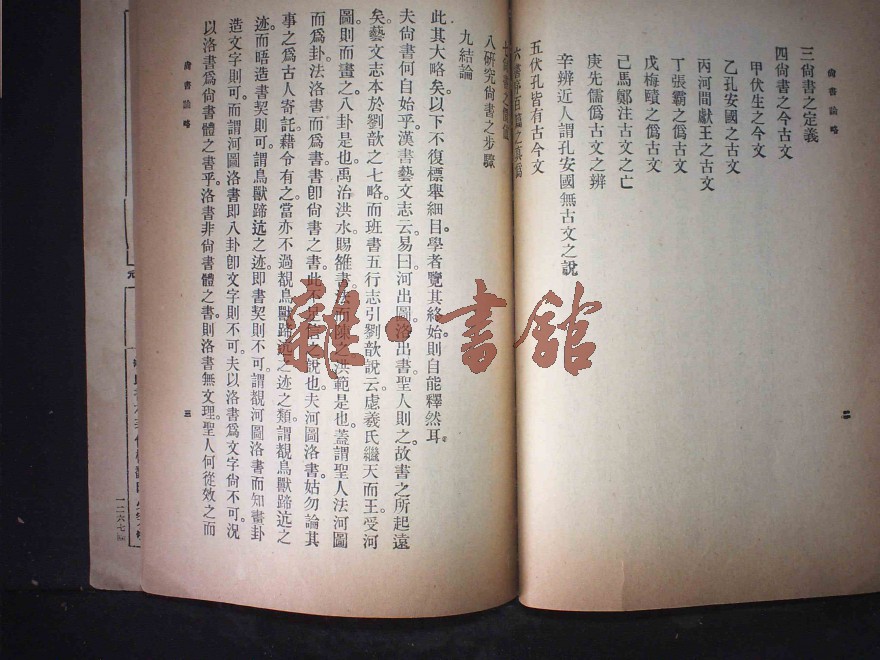 尙書論略
三尙書之定義
四尙書之今古文
甲伏生之今文
乙孔安國之古文
丙河間獻王之古文
丁張霸之僞古文
戊梅賾之僞古文
己馬鄭注古文之亡
庚先儒僞古文之辨
辛辨近人謂孔安國無古文之說
五伏孔皆有古今文
八研究尙書之步驟
九結論
此其大略矣以下不復標舉細目學者覽其終始則自能釋然耳
夫尙書何自始乎漢書藝文志云易曰河出圖洛出書聖人則之故書之所起遠
矣藝文志本於劉歆之七略而班書五行志引劉歆說云虙羲氏繼天而王受河
圖則而畫之八卦是也禹治洪水賜雒書法而陳之洪範是也蓋謂聖人法河圖
而爲卦法洛書而爲書書卽尙書之書此不足信之說也夫河圖洛書姑勿論其
事之爲古人寄託藉令有之當亦不過覩鳥獸蹄迒之迹之類謂覩鳥獸蹄迒之
迹而唔造書契則可謂鳥獸蹄迒之迹卽書契則不可謂覩河圖洛書而知畫卦
造文字則可而謂河圖洛書卽八卦卽文字則不可夫以洛書爲文字尙不可況
以洛書爲尙書體之書乎洛書非尙書體之書則洛書無文理聖人何從效之而
尙書論略
三
二
雜·書館
一二六七